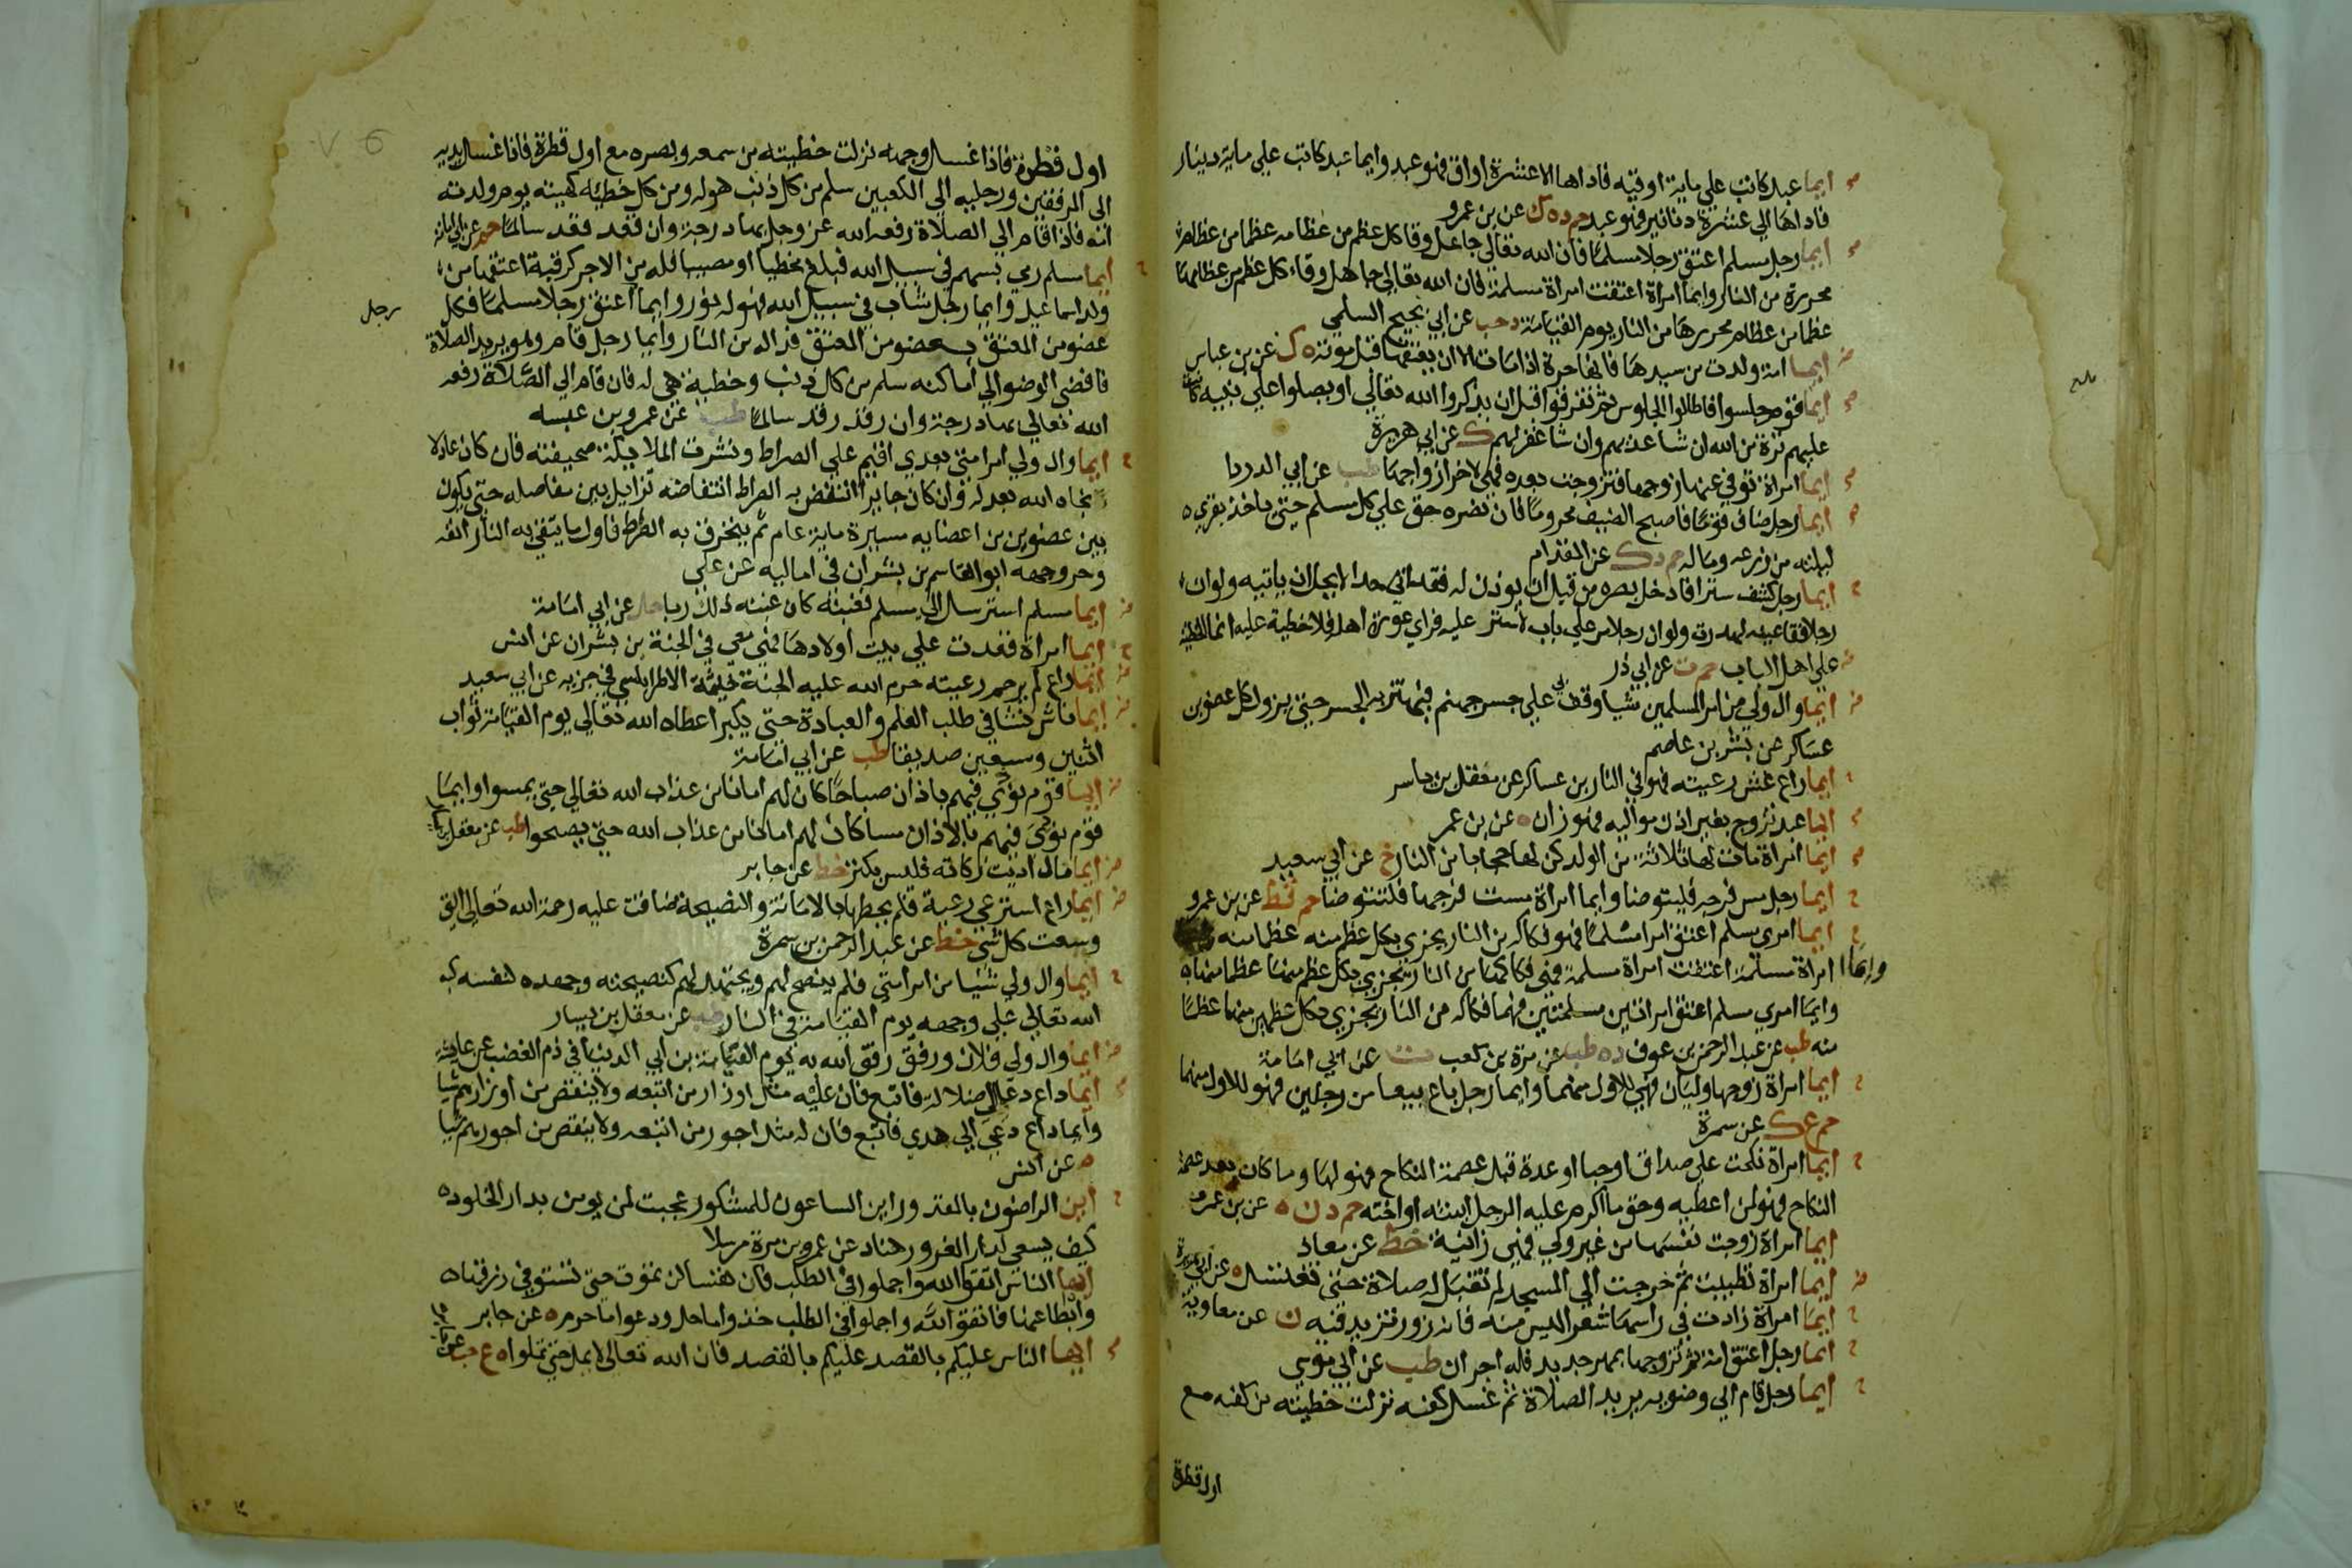 ايما عبد كاتب علي ماية اوقية فاداها الا عشرة اواق فهو عبد وايما عبد كاتب علي ماية دينار
فاداها الي عشرة دنانير فهو عبد حم د ه ك عن بن عمرو
ايما رجل مسلم اعتق رجلا مسلما فان الله تعالي جاعل وقا كل عظم من عظامه عظما من عظام
محررة من النار وايما امراة اعتقت امراة مسلمة فان الله تعالي جاهل وقاء كل عظم من عظامها
عظما من عظام محررها من النار يوم القيامة د حب عن ابي نجيح السلمي
ايما امة ولدت من سيدها فانها حرة اذا مات الا ان يعتقها قبل موته ه ك عن بن عباس
ايما قوم جلسوا فاطالوا الجلوس ثم تفرقوا قبل ان يذكروا الله تعالي او يصلوا علي نبيه كانت
عليهم ترة من الله ان شا عذبهم وان شا غفر لهم ك عن ابي هريرة
ايما امراة توفي عنها زوجها فتزوجت بعده فهي لاخر ازواجها طب عن ابي الدردا
ايما رجل ضاف قوما فاصبح الضيف محروما فان نصره حق علي كل مسلم حتي ياخذ بقري
ليلته من زرعه وماله حم د ك عن المقدام
ايما رجل كشف سترا فادخل بصره من قبل ان يوذن له فقد اتي حدا لا يحل ان ياتيه ولو ان
رجلا فقا عينه لهدرت ولو ان رجلا مر علي باب لا ستر عليه فراي عورة اهله فلا خطية عليه انما الخطية
علي اهل الباب حم ت عن ابي ذر
ايما وال ولي من امر المسلمين شيا وقف به علي جسر جهنم فيهتز به الجسر حتي يزول كل عضو بن
عساكر عن بشر بن عاصم
ايما راع غش رعيته فهو في النار بن عساكر عن معقل بن ياسر
ايما عبد تزوج بغير اذن مواليه فهو زان ه عن بن عمر
ايما امراة مات لها ثلاثة من الولد كن لها حجابا من النار خ عن ابي سعيد
ايما رجل مس فرجه فليتوضا وايما امراة مست فرجها فلتتوضا حم قط عن بن عمرو
ايما امري مسلم اعتق امرا مسلما فهو فكاكه من النار يجزي بكل عظم منه عظما منه
وايما امراة مسلمة اعتقت امراة مسلمة فهي فكاكها من النار تجزي بكل عظم منها عظما منها
وايما امري مسلم اعتق امراتين مسلمتين فهما فكاكه من النار يجزي بكل عظمين منهما عظما
منه طب عن عبد الرحمن بن عوف د ه طب عن مرة بن كعب ت عن ابي امامة
ايما امراة زوجها وليان فهي للاول منهما وايما رجل باع بيعا من رجلين فهو للاول منهما
حم ع ك عن سمرة
ايما امراة نكحت علي صداق او حبا او عدة قبل عصمة النكاح فهو لها وما كان بعد عصمة
النكاح فهو لمن اعطيه وحق ما اكرم عليه الرجل ابنته او اخته حم د ن ه عن بن عمرو
ايما امراة زوجت نفسها من غير ولي فهي زانية خط عن معاذ
ايما امراة تطيبت ثم خرجت الي المسجد لم تقبل له صلاة حتي تغتسل ه عن ابي هريرة
ايما امراة زادت في راسها شعرا ليس منه فانه زور تزيد فيه ن عن معاوية
ايما رجل اعتق امة ثم تزوجها بمهر جديد فله اجران طب عن ابي موسي
ايما رجل قام الي وضويه يريد الصلاة ثم غسل كفيه نزلت خطيته من كفيه مع
اول قطرة
اول قطرة فاذا غسل وجهه نزلت خطيته من سمعه وبصره مع اول قطرة فاذا غسل يديه
الي المرفقين ورجليه الي الكعبين سلم من كل ذنب هو له ومن كل خطية كهيته يوم ولدته
امه فاذا قام الي الصلاة رفعه الله عز وجل بها درجة وان قعد قعد سالما حم عن ابي امامة
ايما مسلم رمي بسهم في سبيل الله فبلغ مخطيا او مصيبا فله من الاجر كرقبة اعتقها من
ولد اسماعيل وايما رجل شاب في سبيل الله فهو له نور وايما اعتق رجلا مسلما فكل
رجل
عضو من المعتق بعضو من المعتق فدا له من النار وايما رجل قام وهو يريد الصلاة
فافضي الوضو الي اماكنه سلم من كل ذنب وخطية هي له فان قام الي الصلاة رفعه
الله تعالي بها درجة وان رقد رقد سالما طب عن عمرو بن عبسه
ايما وال ولي امر امتي بعدي اقيم علي الصراط ونشرت الملايكة صحيفته فان كان عادلا
نجاه الله بعدله وان كان جايرا انتفض به الصراط انتفاضه تزايل بين مفاصله حتي يكون
بين عضوين من اعضايه مسيرة ماية عام ثم ينخرق به الصراط فاول ما يتقي به النار انفه
وحر وجهه ابو القاسم بن بشران في اماليه عن علي
ايما مسلم استرسل الي مسلم فغبنه كان غبنه ذلك ربا حل عن ابي امامة
ايما امراة قعدت علي بيت اولادها فهي معي في الجنة بن بشران عن انس
ايما راع لم يرحم رعيته حرم الله عليه الجنة خيثمة الاطرابلسي في جزيه عن ابي سعيد
ايما ناش نشا في طلب العلم والعبادة حتي يكبر اعطاه الله تعالي يوم القيامة ثواب
اثنين وسبعين صديقا طب عن ابي امامة
ايما قوم نودي فيهم باذان صباحا كان لهم امانا من عذاب الله تعالي حتي يمسوا وايما
قوم نودي فيهم بالاذان مسا كان لهم امانا من عذاب الله حتي يصبحوا طب عن معقل
ايما مال اديت زكاته فليس بكنز خط عن جابر
ايما راع استرعي رعية فلم يحطها بالامانة والنصيحة ضاقت عليه رحمة الله تعالي التي
وسعت كل شي خط عن عبد الرحمن بن سمرة
ايما وال ولي شيا من امر امتي فلم ينصح لهم ويجتهد لهم كنصيحته وجهده لنفسه كبه
الله تعالي علي وجهه يوم القيامة في النار طب عن معقل بن يسار
ايما وال ولي فلان ورفق رفق الله به يوم القيامة بن ابي الدنيا في ذم الغضب عن عايشة
ايما داع دعي الي ضلالة فاتبع فان عليه مثل اوزار من اتبعه ولا ينقص من اوزارهم شيا
وايما داع دعي الي هدي فاتبع فان له مثل اجور من اتبعه ولا ينقص من اجورهم شيا
ه عن انس
اين الراضون بالمقدور اين الساعون للمشكور عجبت لمن يومن بدار الخلود
كيف يسعي لدار الغرور هناد عن عمرو بن مرة مرسلا
ايها الناس اتقوا الله واجملوا في الطلب فان نفسا لن تموت حتي تستوفي رزقها
وابطا عنها فاتقوا الله واجملوا في الطلب خذوا ما حل ودعوا ما حرم ه عن جابر
ايها الناس عليكم بالقصد عليكم بالقصد فان الله تعالي لا يمل حتي تملوا ه ع حب عن جابر